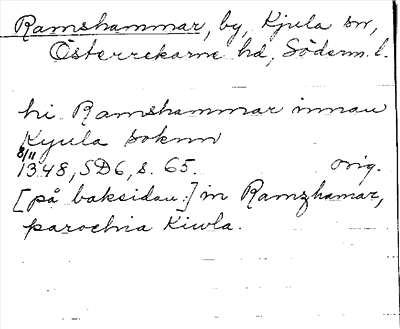 Ramshammar, by, Kjula sn,
Österrekarne hd, Söderm. l.
hi Ramshammar innan
Kyula soknn
8/11
1348, SD6, s. 65. orig.
[på baksidan:] in Ramzhamar,
parochia Kiwla.